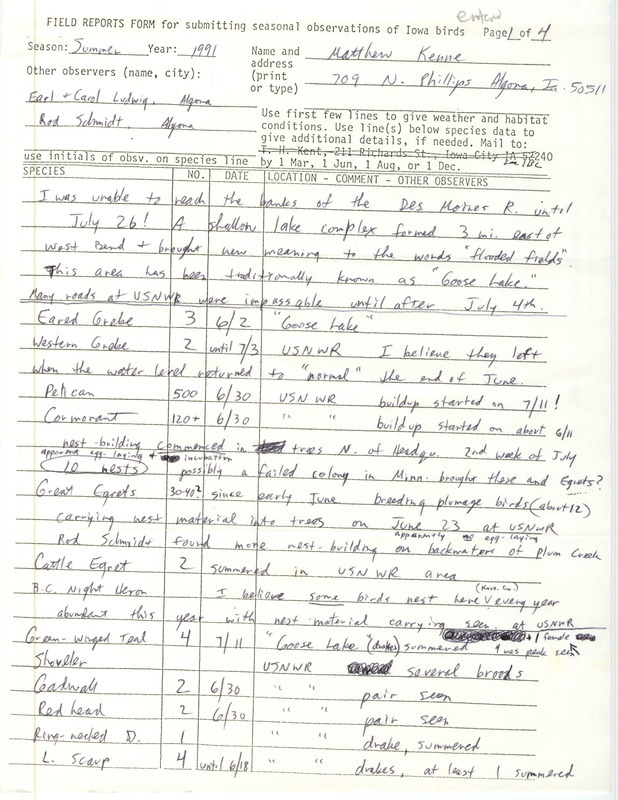 entered
FIELD REPORTS FORM for submitting seasonal observations of Iowa birds Page 1 of 4
Season: Summer Year: 1991 Name and address (print or type) Matthew Kenne
709 N. Phillips Algona, Ia. 50511
Other observers (name, city):
Earl + Carol Ludwig, Algona
Rod Schmidt Algona
Use first few lines to give weather and habitat
conditions. Use line(s) below species data to
give additional details, if needed. Mail to:
T. H. Kent, 211 Richards St., Iowa City IA 52240
by 1 Mar, 1 Jun, 1 Aug, or 1 Dec.
use initials of obsv. on species line
SPECIES NO. DATE LOCATION - COMMENT - OTHER OBSERVERS
I was unable to reach the banks of the Des Moines R. until
July 26! A shallow lake complex formed 3 mi. east of
West Bend + brought new meaning to the words "flooded fields".
This area has been traditionally known as "Goose Lake."
Many roads at USNWR were impassable until after July 4th.
Eared Grebe 3 6/2 "Goose Lake"
Western Grebe 2 until 7/3 USNWR I believe they left
when the water level returned to "normal" the end of June.
Pelican 500 6/30 USNWR buildup started on 7/11!
Cormorant 120+ 6/30 " " buildup started on about 6/11
nest-building commenced in trees N. of Headqu. 2nd week of July
apparent egg-laying + incubation
(10 nests) possibly a failed colony in Minn. brought these and Egrets?
Great Egrets 30-40? since early June breeding plumage birds (about 12)
carrying nest material into trees on June 23 at USNWR
apparently no egg-laying
Rod Schmidt found more nest-building on backwaters of Plum Creek
Cattle Egret 2 summered in USNWR area
B.C. Night Heron I believe some birds nest here (Koss. Co.) every year
abundant this year with nest material carrying seen at USNWR
Green-Winged Teal 4 7/11 "Goose Lake" (drakes) summered + 1 female
9 was peak seen
Shoveler USNWR several broods
Gadwall 2 6/30 " " pair seen
Redhead 2 6/30 " " pair seen
Ring-necked D. 1 " " drake, summered
L. Scaup 4 until 6/18 " " drakes, at least 1 summered